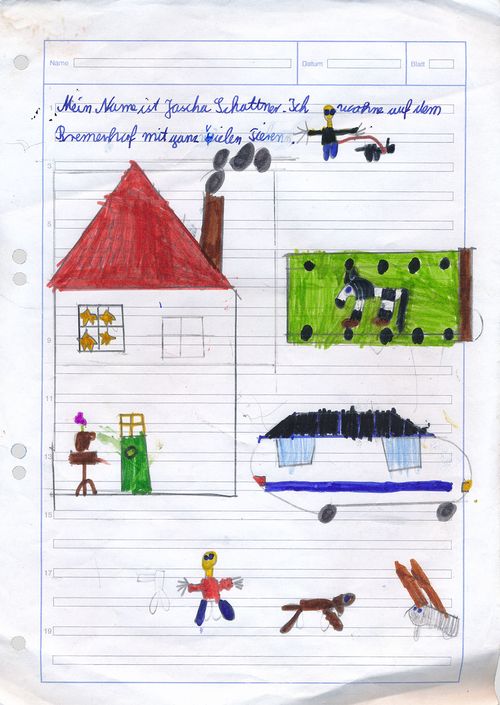 Name
Datum
Blatt
1
Mein Name ist Jascha Schattner. Ich wohne auf dem
Bremerhof mit ganz vielen Tieren.
3
5
9
11
13
15
17
19